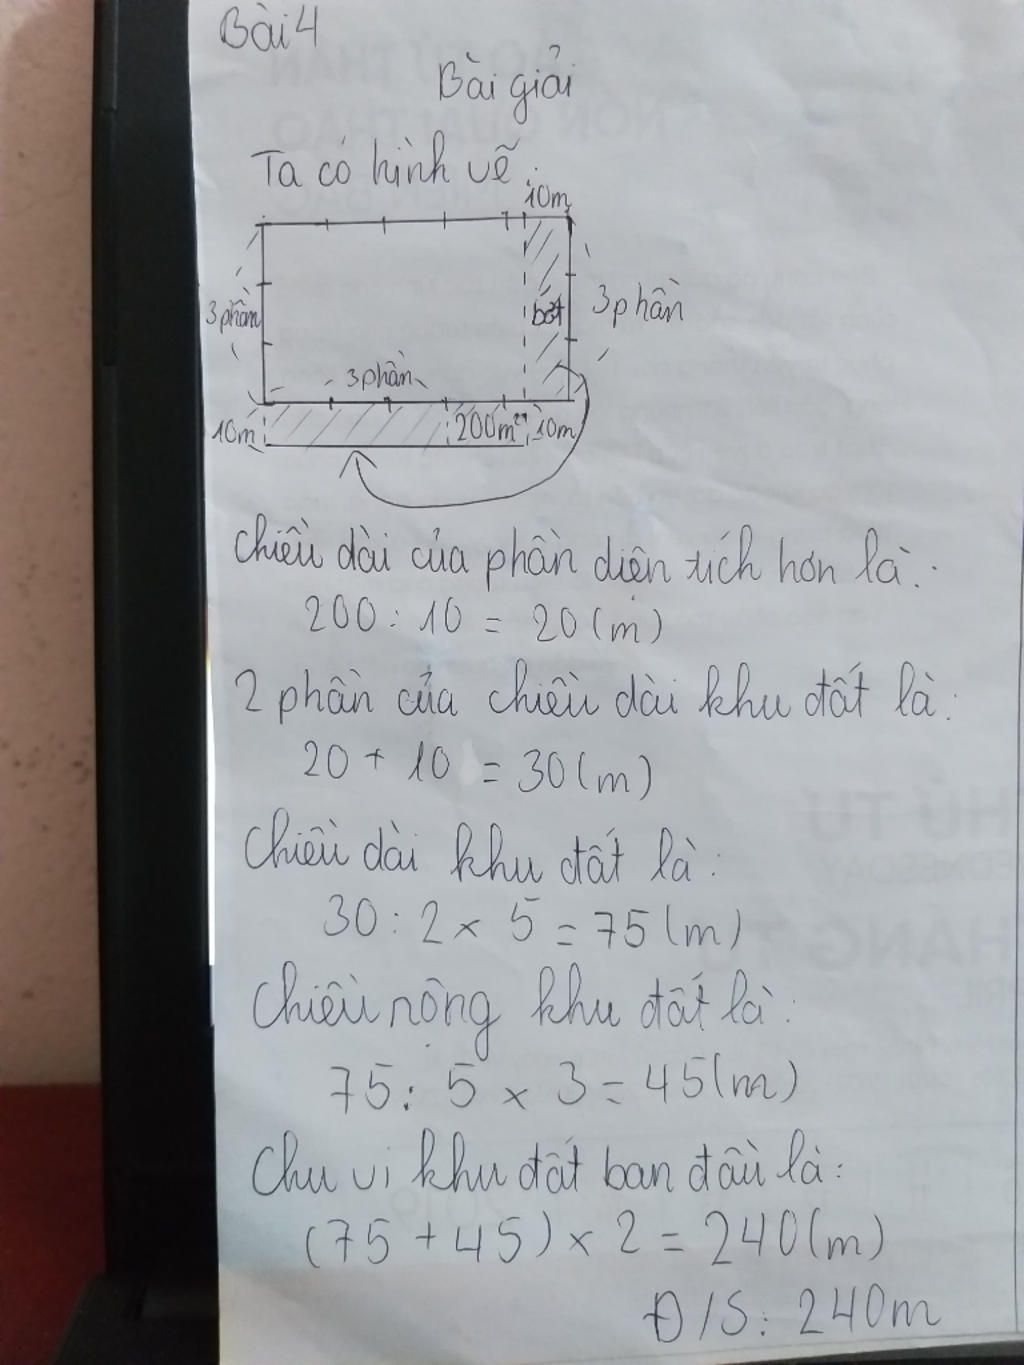 Bài 4
Bài giải
Ta có hình vẽ:
10m
3 phần
bớt
3 phần
3 phần
10m
200m²
10m
Chiều dài của phần diện tích hơn là:
200 : 10 = 20 (m)
2 phần của chiều dài khu đất là:
20 + 10 = 30 (m)
Chiều dài khu đất là:
30 : 2 × 5 = 75 (m)
Chiều rộng khu đất là:
75 : 5 × 3 = 45 (m)
Chu vi khu đất ban đầu là:
(75 + 45) × 2 = 240 (m)
Đ/S: 240m